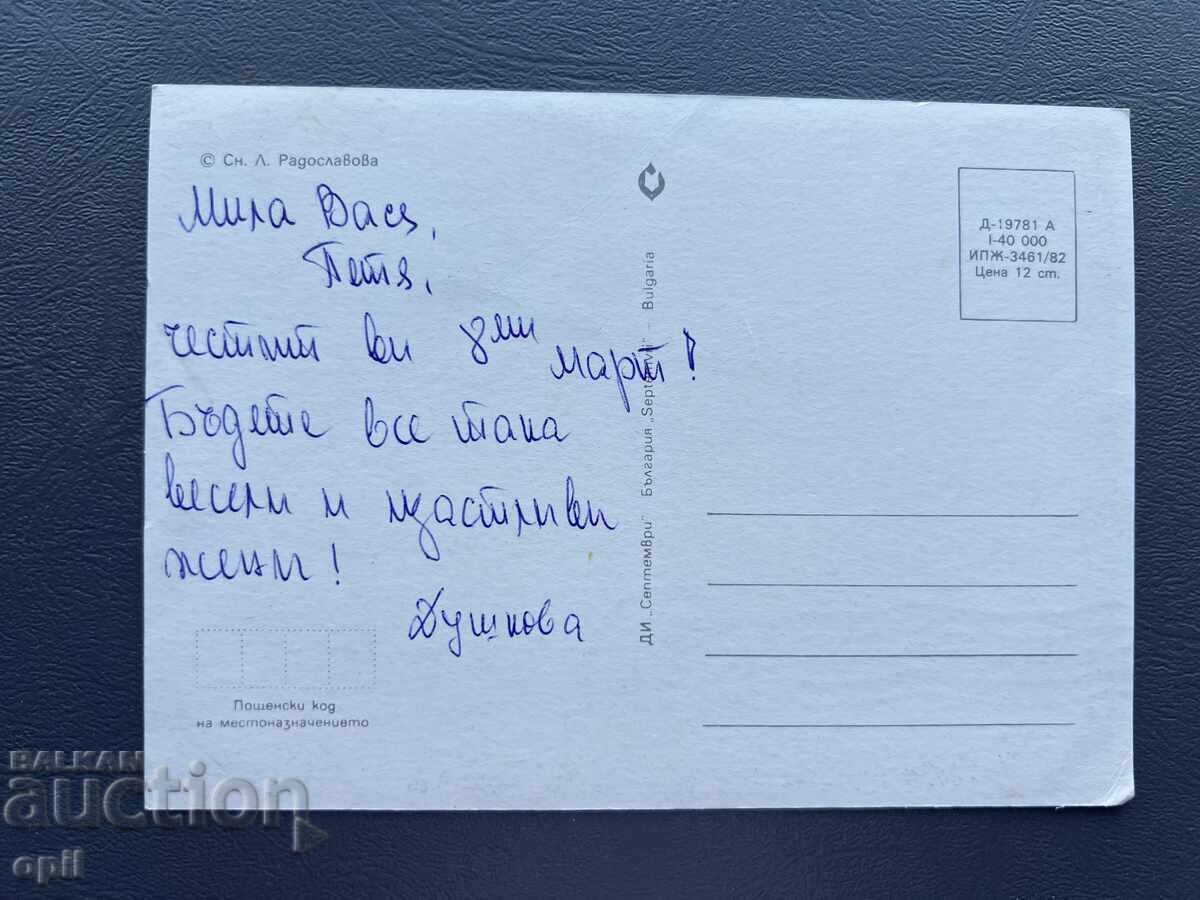 © Сн. Л. Радославова
Мила Васе,
Петя,
честит ви 8ми
март!
Бъдете все така
весели и щастливи
жени!
Душкова
Пощенски код
на местоназначението
ДИ „Септември" България „Septemvri" - Bulgaria
Д-19781 А
I-40 000
ИПЖ-3461/82
Цена 12 ст.
BALKAN
auction
opil